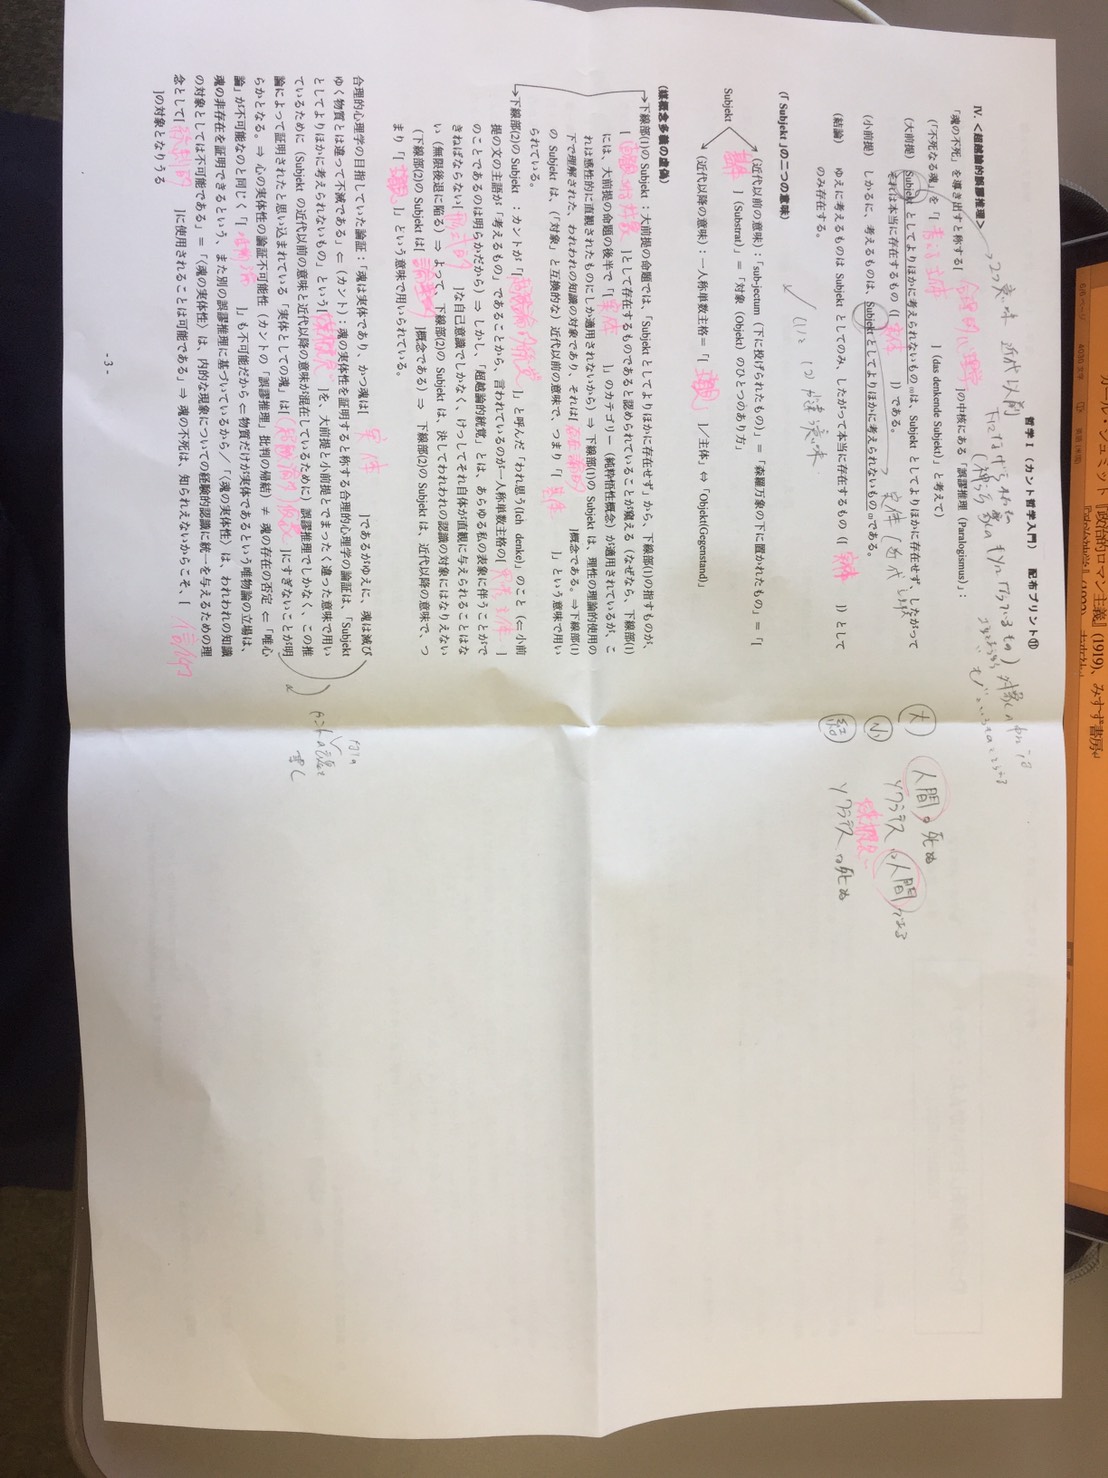 哲学Ⅰ（カント哲学入門） 配布プリント⑪
Ⅳ. ＜超越論的誤謬推理＞
「魂の不死」を導き出すと称する[ 合理的心理学 ]の中核にある「誤謬推理 (Paralogismus)」：
（「不死なる魂」を「[ 考える主体 ] (das denkende Subjekt)」と考えて）
（大前提） Subjekt としてよりほかに考えられないもの(1)は、Subjekt としてよりほかに存在せず、したがって
それは本当に存在するもの（[ 実体 ]）である。
（小前提） しかるに、考えるものは、Subjekt としてよりほかに考えられないもの(2)である。
（結論） ゆえに考えるものは Subjekt としてのみ、したがって本当に存在するもの（[ 実体 ]）として
のみ存在する。
（「Subjekt」の二つの意味）
（近代以前の意味）：「sub-jectum（下に投げられたもの）」＝「森羅万象の下に置かれたもの」＝「[
基体 ] (Substrat)」＝「対象 (Objekt) のひとつのあり方」
Subjekt
（近代以降の意味）：一人称単数主格＝「[ 主観 ]」／主体 ⇔ 「Objekt(Gegenstand)」
（媒概念多義の虚偽）
→下線部(1)の Subjekt：大前提の命題では、「Subjekt としてよりほかに存在せず」から、下線部(1)の指すものが、
[ ]として存在するものであると認められていることが窺える（なぜなら、下線部(1)
には、大前提の命題の後半で「[ 実体 ]」のカテゴリー（純粋悟性概念）が適用されているが、こ
れは感性的に直観されたものにしか適用されないから）⇒ 下線部(1)の Subjekt は、理性の理論的使用の
下で理解された、われわれの知識の対象であり、それは[ 存在論的 ]概念である。⇒下線部(1)
の Subjekt は、（「対象」と互換的な）近代以前の意味で、つまり「[ 基体 ]」という意味で用い
られている。
→下線部(2)の Subjekt ：カントが「[超越論的統覚]」と呼んだ「われ思う(Ich denke)」のこと（⇐ 小前
提の文の主語が「考えるもの」であることから、言われているのが一人称単数主格の[ 思考主体 ]
のことであるのは明らかだから）⇒ しかし、「超越論的統覚」とは、あらゆる私の表象に伴うことがで
きねばならない[ 形式的 ]な自己意識でしかなく、けっしてそれ自体が直観に与えられることはな
い（無限後退に陥る）⇒ よって、下線部(2)の Subjekt は、決してわれわれの認識の対象にはなりえない
（下線部(2)の Subjekt は[ ]概念である）⇒ 下線部(2)の Subjekt は、近代以降の意味で、つ
まり「[ 主観 ]」という意味で用いられている。
合理的心理学の目指していた論証：「魂は実体であり、かつ魂は[ 実体 ]であるがゆえに、魂は滅び
ゆく物質とは違って不滅である」⇐（カント）：魂の実体性を証明すると称する合理的心理学の論証は、「Subjekt
としてよりほかに考えられないもの」という[媒概念]を、大前提と小前提とでまったく違った意味で用い
ているために（Subjekt の近代以前の意味と近代以降の意味が混在しているために）誤謬推理でしかなく、この推
論によって証明されたと思い込まれている「実体としての魂」は[ ]にすぎないことが明
らかとなる。⇒ 心の実体性の論証不可能性（カントの「誤謬推理」批判の帰結）≠ 魂の存在の否定 ⇐「唯心
論」が不可能なのと同じく「[ 唯物論 ]」も不可能だから ⇐ 物質だけが実体であるという唯物論の立場は、
魂の非存在を証明できるという、また別の誤謬推理に基づいているから／「魂の実体性」は、われわれの知識
の対象としては不可能である」＝「（魂の実体性）は、内的な現象についての経験的認識に統一を与えるための理
念として[ 統制的 ]に使用されることは可能である」⇒ 魂の不死は、知られえないからこそ、[ 信仰
]の対象となりうる
- 3 -
2つの意味 近代以前
実体（古代
(1)と (2)が違う意味
大 人間は死ぬ
小 ソクラテスは人間である
媒概念
結 ソクラテスは死ぬ
カール・シュミット『政治的ロマン主義』(1919)、みすず書房